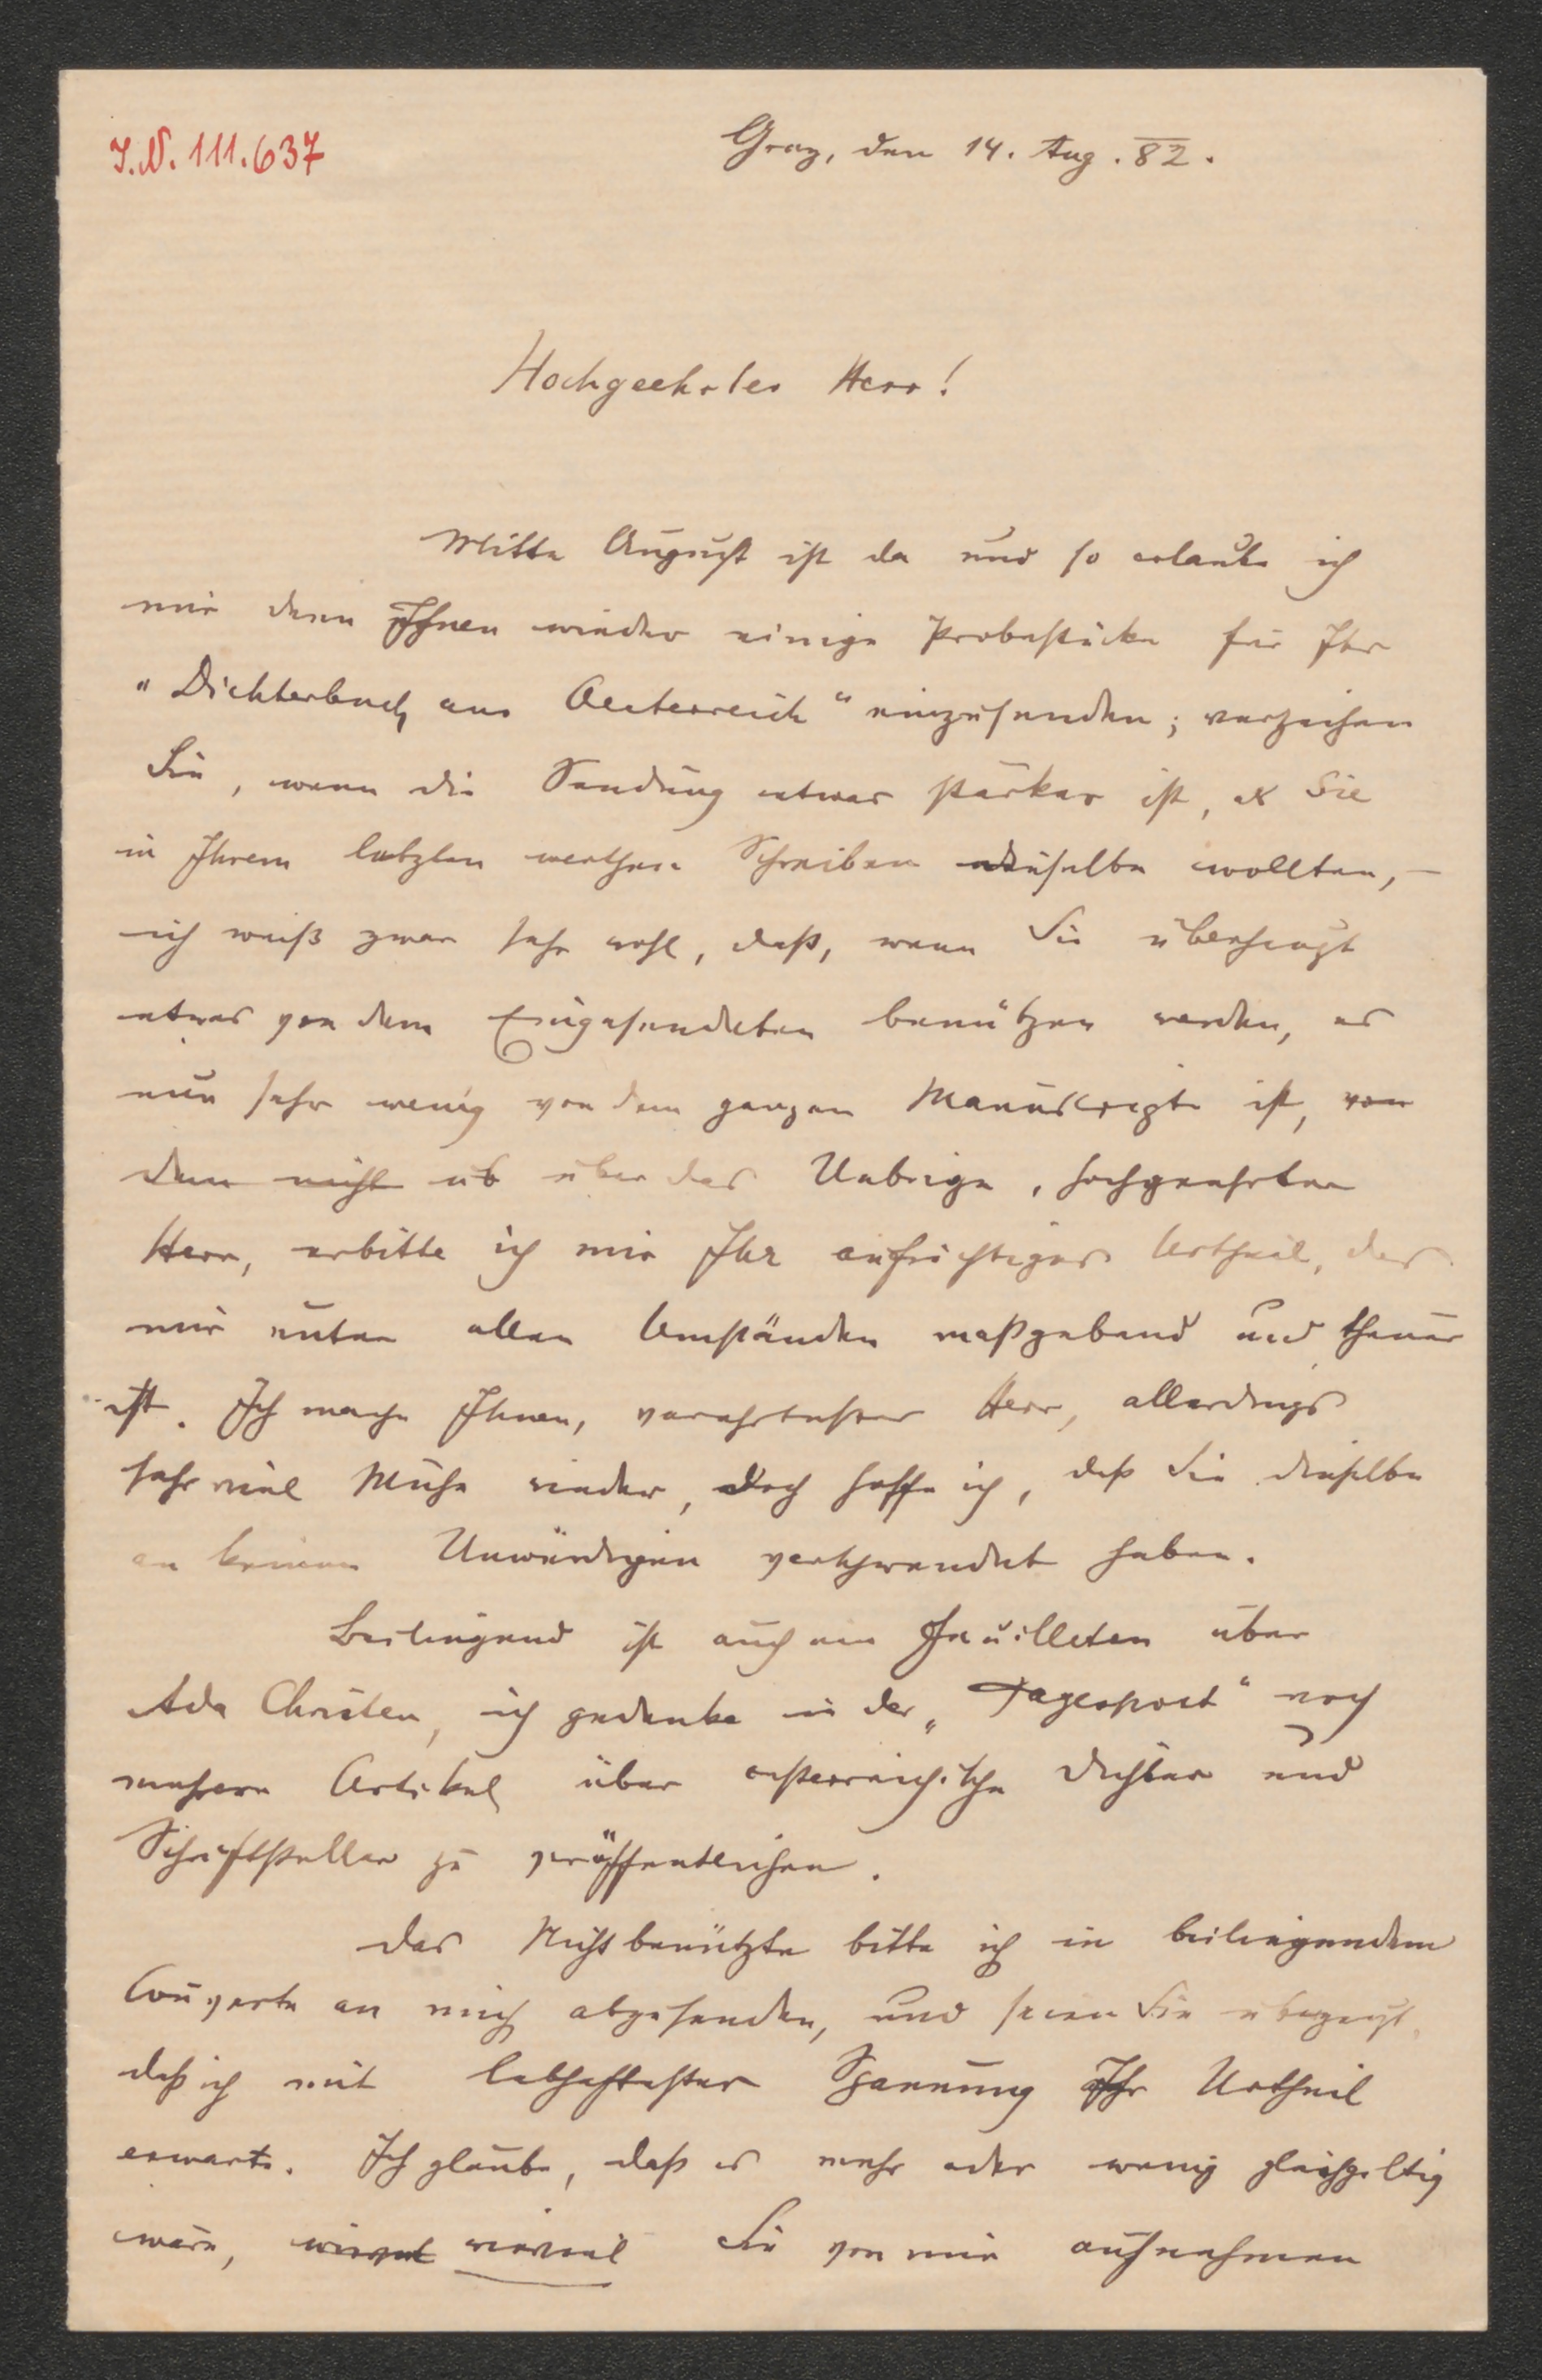 J.N. 111.637
Graz, den 14. Aug. 82.
Hochgeehrter Herr!
Mitte August ist da und so erlaube ich
mir denn Ihnen wieder einige Probestücke für Ihr
"Dichterbuch aus Oesterreich" einzusenden; verzeihen
Sie, wenn die Sendung etwas stärker ist, als Sie
in Ihrem letzten werthen Schreiben dieselbe wollten, –
ich weiß zwar sehr wohl, daß, wenn Sie überhaupt
etwas von dem Eingesendeten benützen werden, es
nur sehr wenig von dem ganzen Manuscripte ist, von
dem nicht über das Uebrige, hochgeehrter
Herr, erbitte ich mir Ihr aufrichtiges Urtheil, das
mir unter allen Umständen maßgebend und theuer
ist. Ich mache Ihnen, verehrtester Herr, allerdings
sehr viel Mühe wieder, doch hoffe ich, daß Sie dieselbe
an keinen Unwürdigen verschwendet haben.
Beiliegend ist auch ein Feuilleton über
Ada Christen, ich gedenke in der "Tagespost" noch
mehrere Artikel über österreichische Dichter und
Schriftsteller zu veröffentlichen.
Das Nichtbenützte bitte ich in beiliegendem
Couverte an mich abzusenden, und seien Sie überzeugt,
daß ich mit lebhaftester Spannung Ihr Urtheil
erwarte. Ich glaube, daß es mehr oder wenig gleichgiltig
wäre, wieviel wieviel Sie von mir aufnehmen